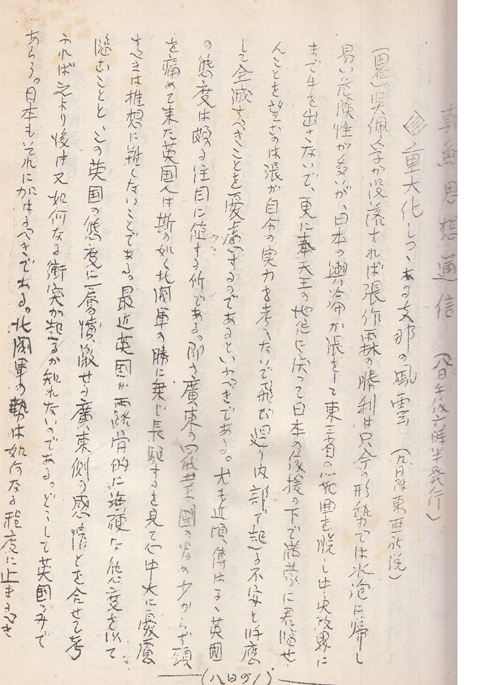 草魚思想通信 (八日午後六時半発行)
◎重大化しつゝある支那の風雲 (九月 東亜 説)
(略)呉佩孚が没落すれば張作霖の勝利は只今の形勢では水泡に帰し
易い危険性が多いが、日本の輿論が張をして東三省の 曲を脱し中央政界に
まで手を出さないで、更に奉天王の地位に戻って日本の後援の下で満蒙に君臨せ
んことを望むのは張が自分の実力を考えないで飛び廻り内部に起る不安と 應
して全滅すべきことを憂慮するのであるといふべきである。尤も近頃傳はるゝ英国
の態度は頗る注目に値する所である。即ち廣東の 問 の為め少からず頭
を痛めて来た英国人は斯の如く北伐軍の勝に乗じ長駆するを見て心中大に憂慮
すべきは推想に難しないことである。最近英国が露骨的に強硬な態度を以て
臨むことと、この英国の態度に一層憤激せる廣東側の感情とを合せ考
ふれば之より後は又如何なる衝突が起るか知れないのである。どうして英国のみで
あらう。日本もそれに加はるべきである。北伐軍の勢は如何なる程度に止まるべき
(八日の1)